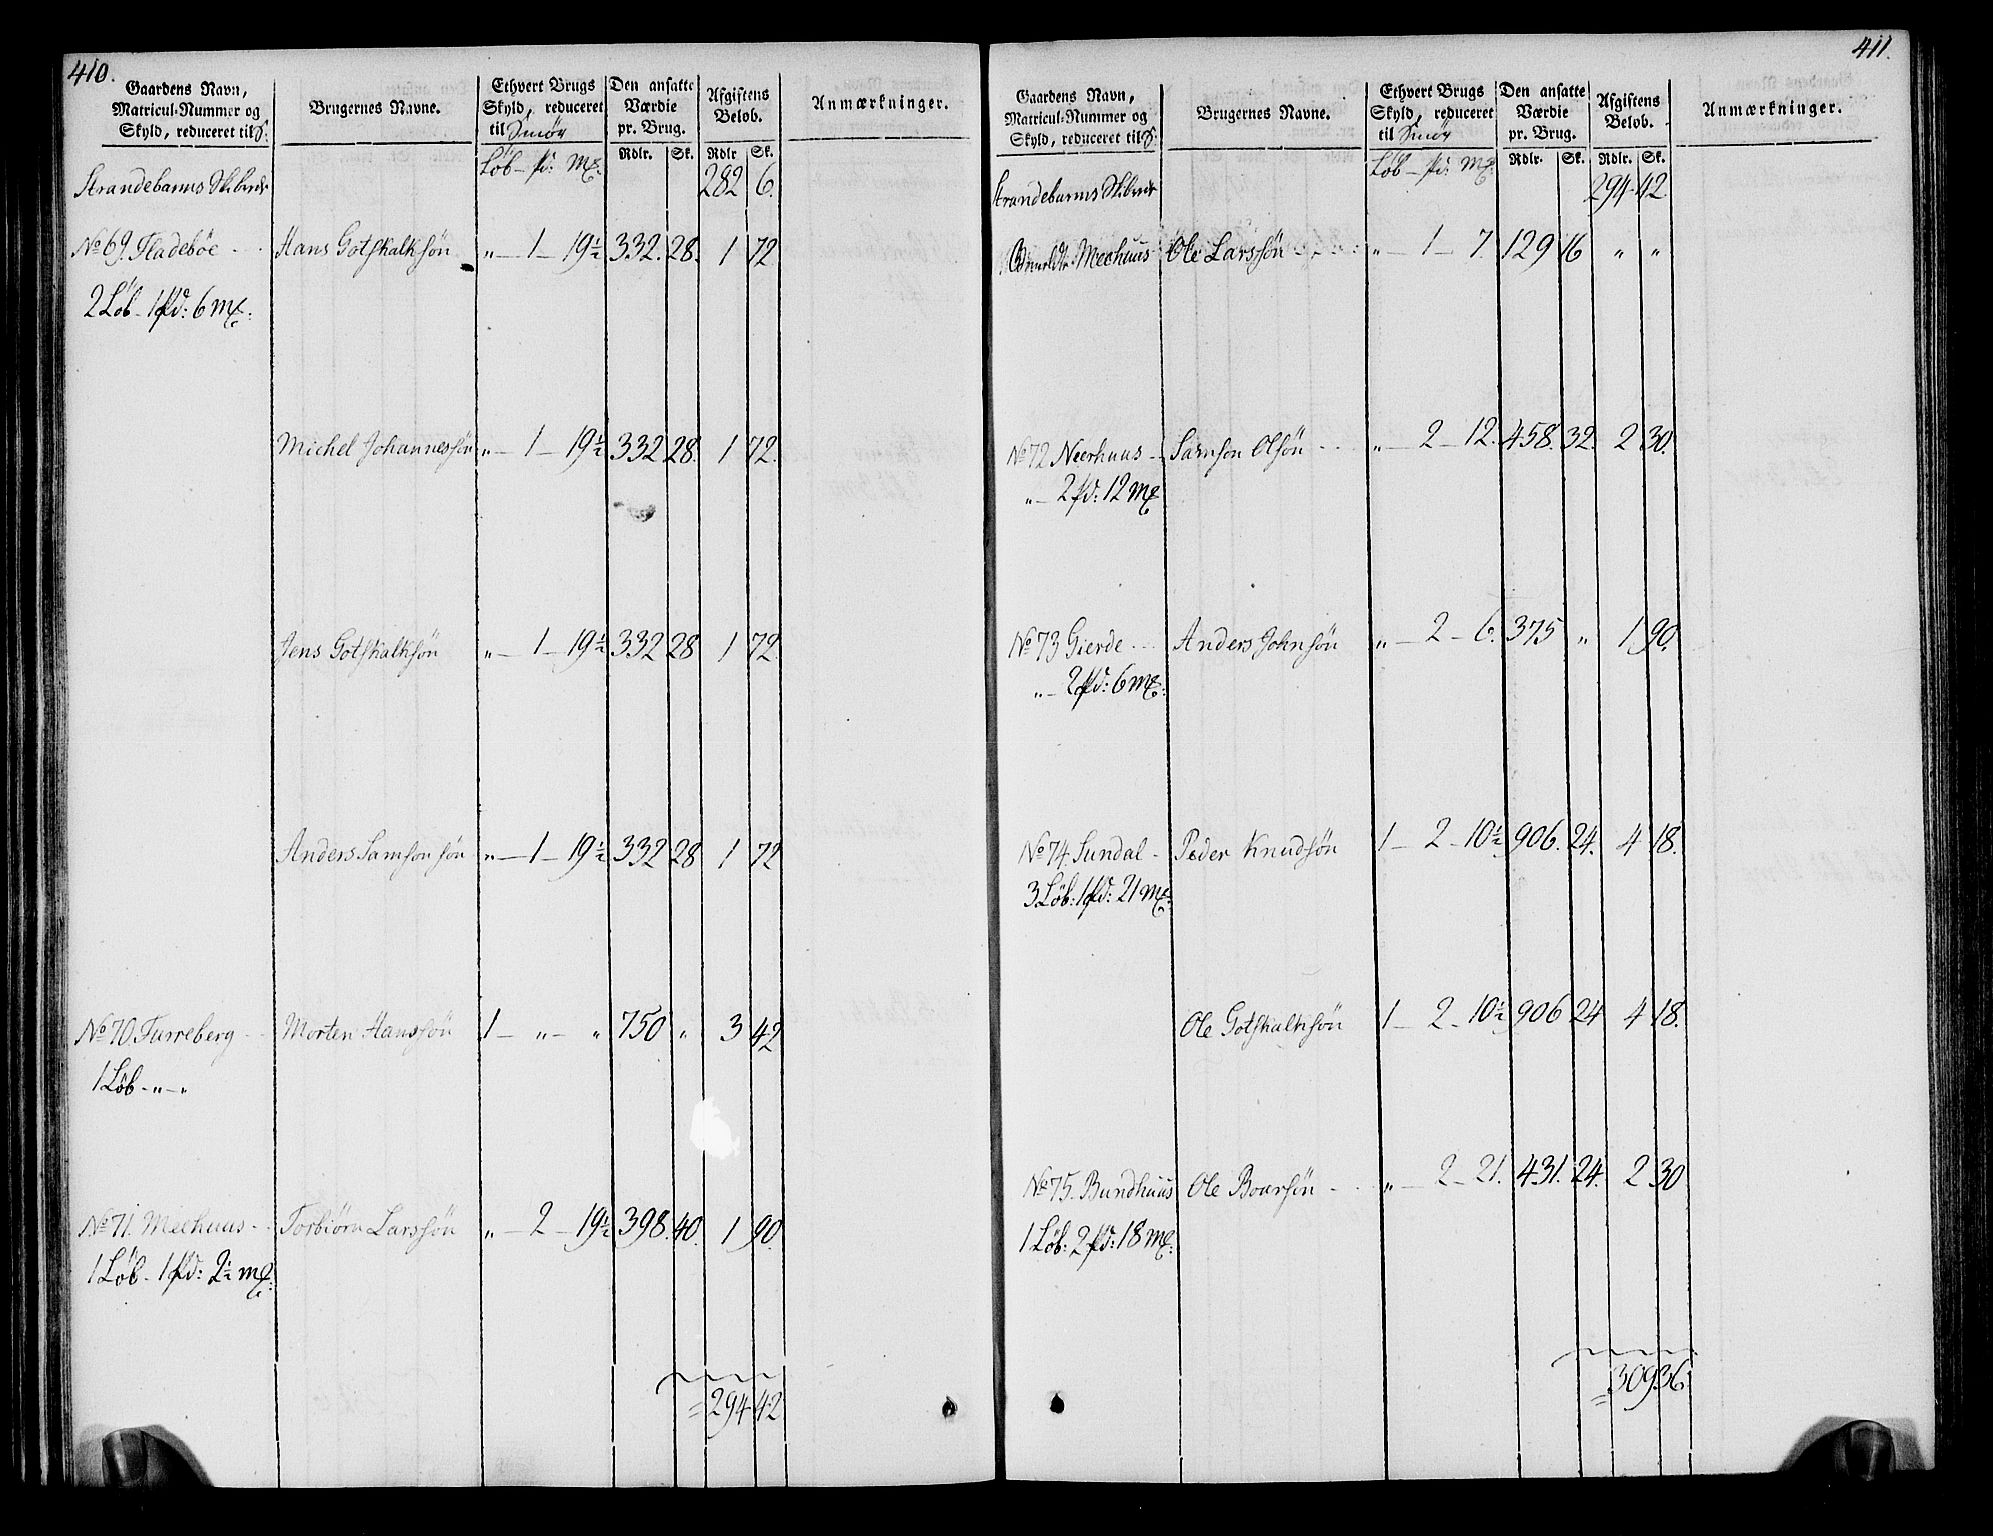 410.
Gaardens Navn,
Matricul-Nummer og
Skyld, reduceret til S.
Brugernes Navne.
Ethvert Brugs
Skyld, reduceret
til Smør
Den ansatte
Værdie
pr. Brug.
Afgiftens
Beløb.
Anmærkninger.
Løb - pd: mk:
Rdlr. Sk. Rdlr Sk.
Strandebarms Skibrede 282 6.
No 69. Fladebøe Hans Gotskalksøn „ - 1 - 19½ 332. 28. 1 72
2 Løb - 1 pd: 6 mk:
Michel Johannessøn „ - 1 - 19½ 332 28. 1 72.
Jens Gotskalksøn „ - 1 - 19½ 332 28 1 72.
Anders Samsonsøn „ - 1 - 19½ 332 28 1 72
No 70. Furreberg Morten Hanssøn 1 - „ - „ 750 „ 3 42
1 Løb - „ - „
No 71. Meehuus Torbiörn Larssøn „ - 2 - 19½ 398. 40. 1 90.
1 Løb - 1 pd: 2½ mk:
= 294 42
411.
Gaardens Navn,
Matricul-Nummer og
Skyld, reduceret til S.
Brugernes Navne.
Ethvert Brugs
Skyld, reduceret
til Smör
Den ansatte
Værdie
pr. Brug.
Afgiftens
Beløb.
Anmærkninger.
Løb - pd: mk:
Rdlr. Sk. Rdlr. Sk.
Strandebarms Skibrede 294 42.
Meehuus Ole Larssøn „ - 1 - 7. 129 16 „ „
No 72 Neerhuus Samson Olsøn „ - 2 - 12. 458. 32. 2 30.
„ - 2 pd: 12 mk
No 73 Gierde Anders Johnsøn „ - 2 - 6. 375 „ 1 90.
„ - 2 pd: 6 mk:
No 74. Sundal Peder Knudsøn 1 - 2 - 10½ 906. 24. 4 18.
3 Løb: 1 pd: 21 mk:
Ole Gotskalksøn 1 - 2 - 10½ 906 24 4 18.
No 75. Bundhuus Ole Boarsøn „ - 2 - 21. 431. 24. 2 30
1 Løb: 2 pd: 18 mk:
= 309 36.